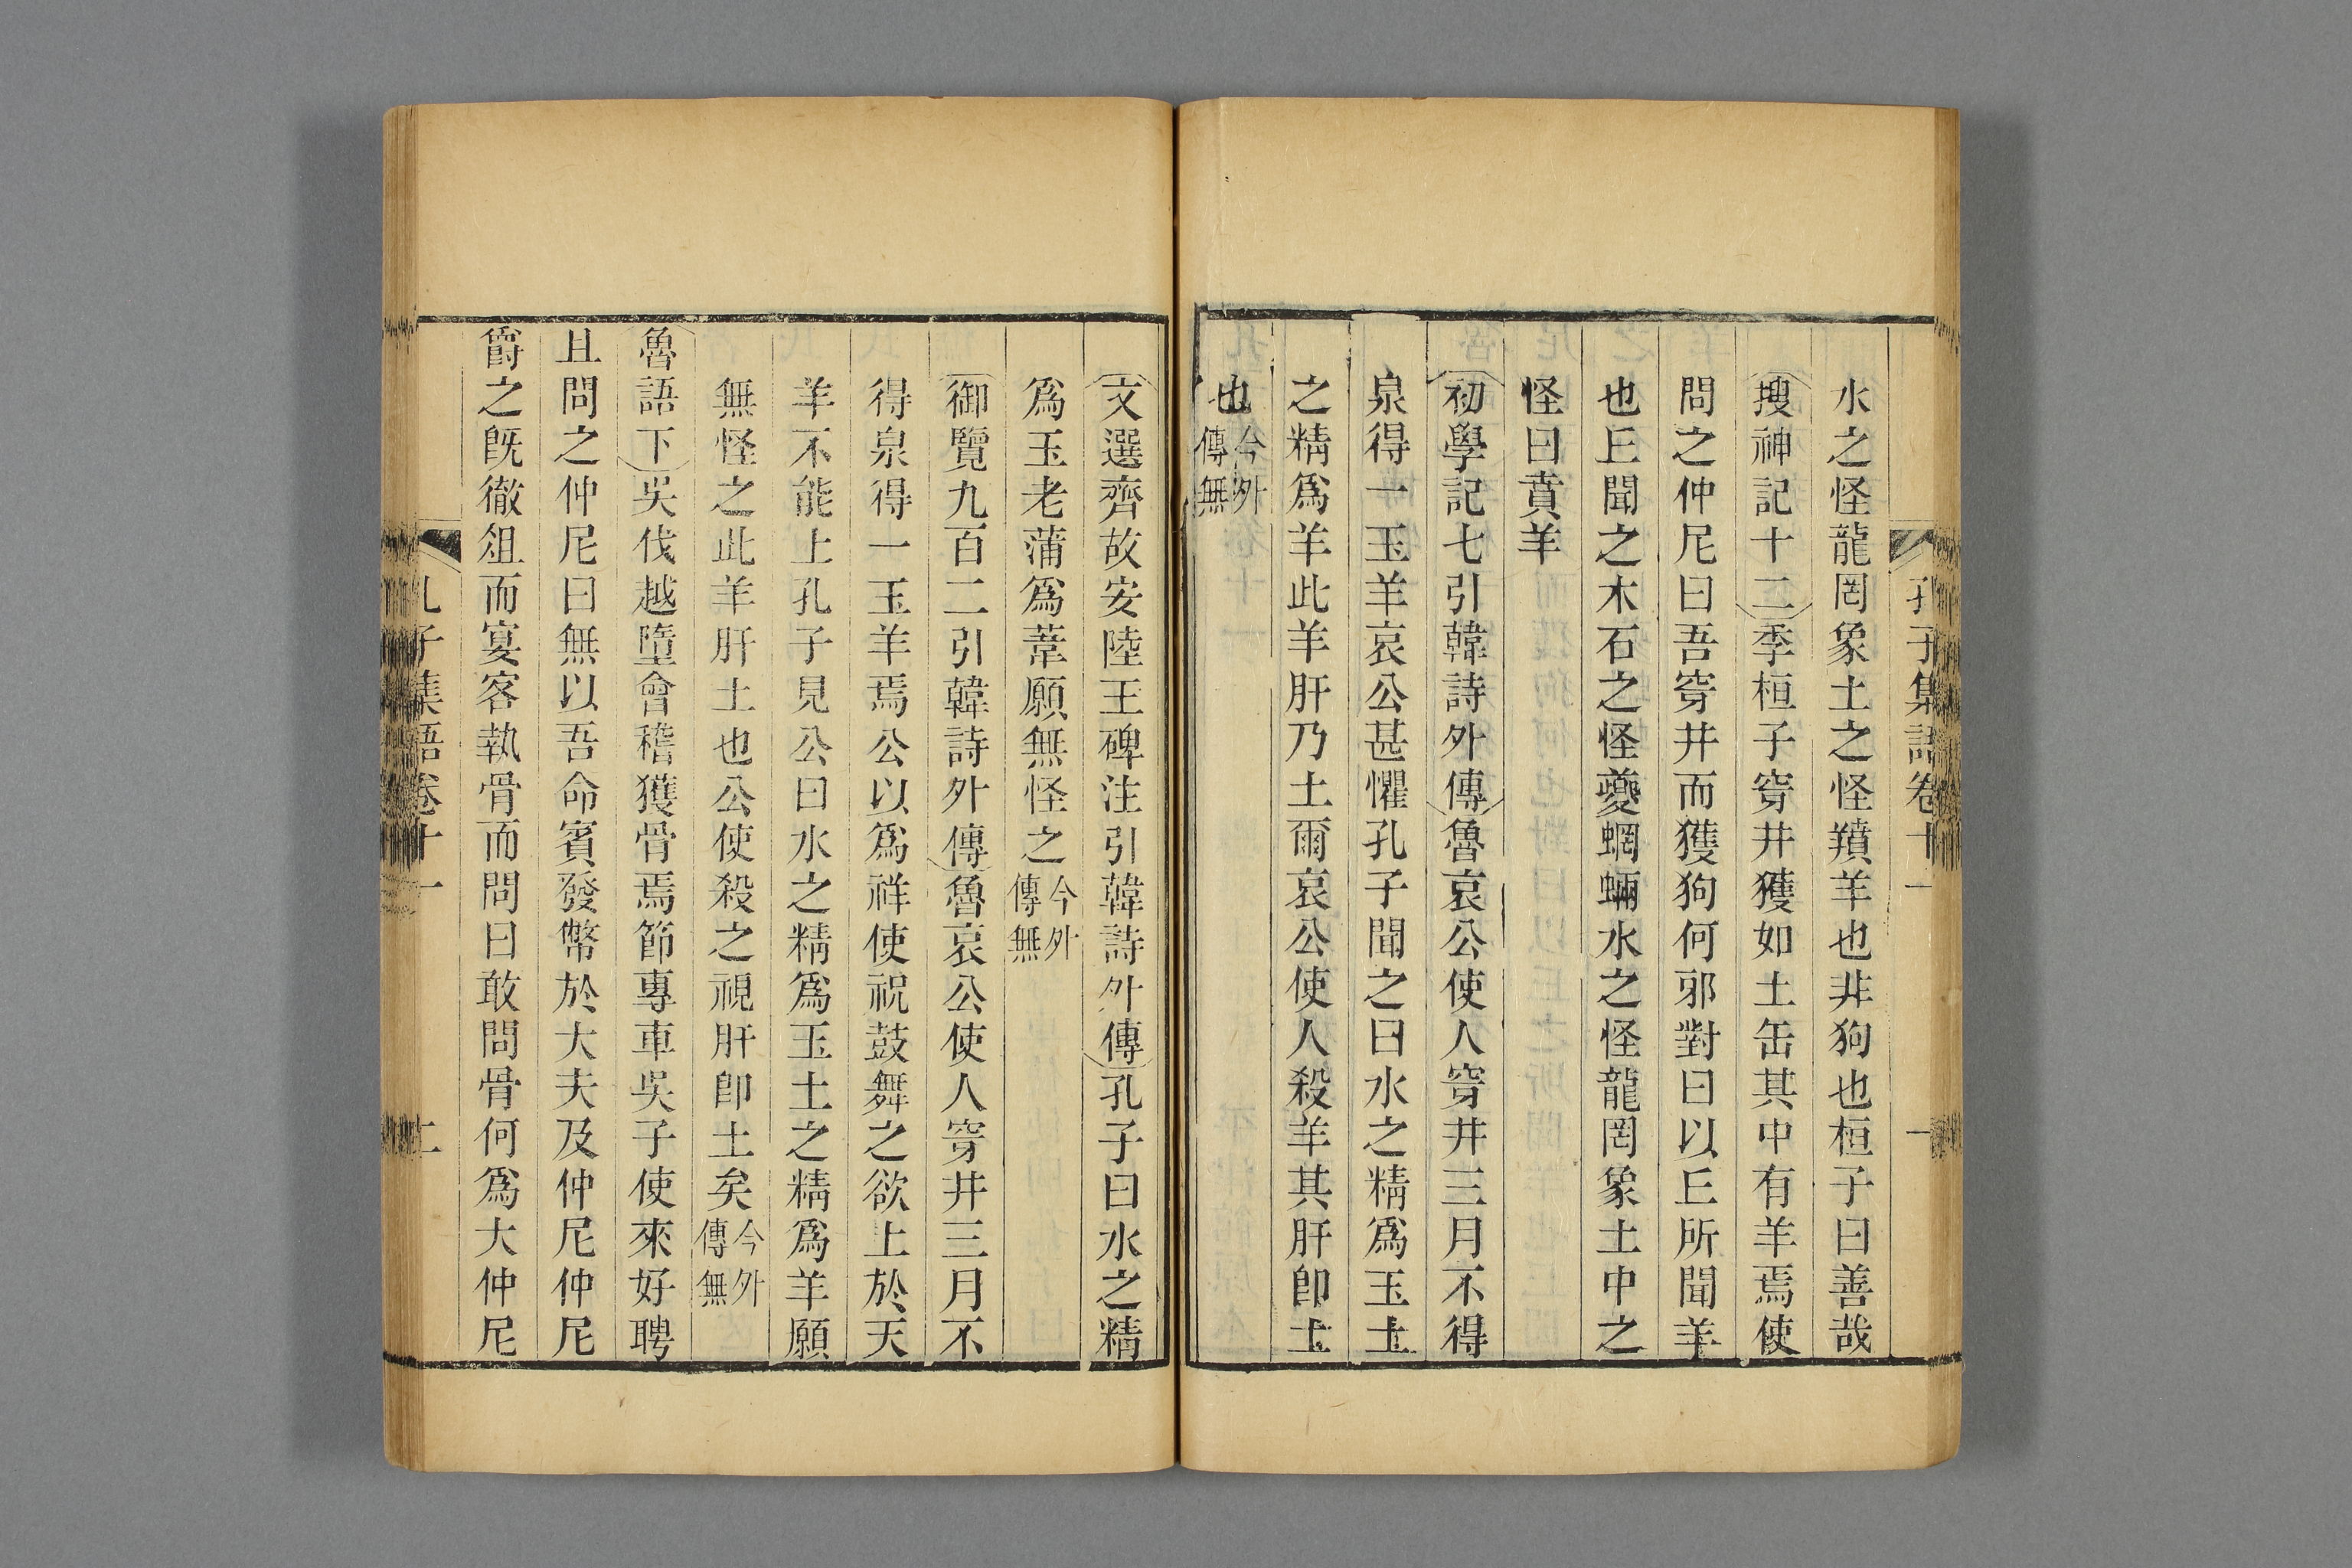 孔子集語卷十一　一
水之怪龍罔象土之怪羵羊也非狗也桓子曰善哉
搜神記十二季桓子穿井獲如土缶其中有羊焉使
問之仲尼曰吾穿井而獲狗何邪對曰以丘所聞羊
也丘聞之木石之怪夔蝄蜽水之怪龍罔象土中之
怪曰賁羊
初學記七引韓詩外傳魯哀公使人穿井三月不得
泉得一玉羊哀公甚懼孔子聞之曰水之精爲玉土
之精爲羊此羊肝乃土爾哀公使人殺羊其肝卽土
也今外傳無
文選齊故安陸王碑注引韓詩外傳孔子曰水之精
爲玉老蒲爲葦願無怪之今外傳無
御覽九百二引韓詩外傳魯哀公使人穿井三月不
得泉得一玉羊焉公以爲祥使祝鼓舞之欲上於天
羊不能上孔子見公曰水之精爲玉土之精爲羊願
無怪之此羊肝土也公使殺之視肝卽土矣今外傳無
魯語下吳伐越墮會稽獲骨焉節專車吳子使來好聘
且問之仲尼曰無以吾命賓發幣於大夫及仲尼仲尼
爵之旣徹俎而宴客執骨而問曰敢問骨何爲大仲尼
孔子集語卷十一　二